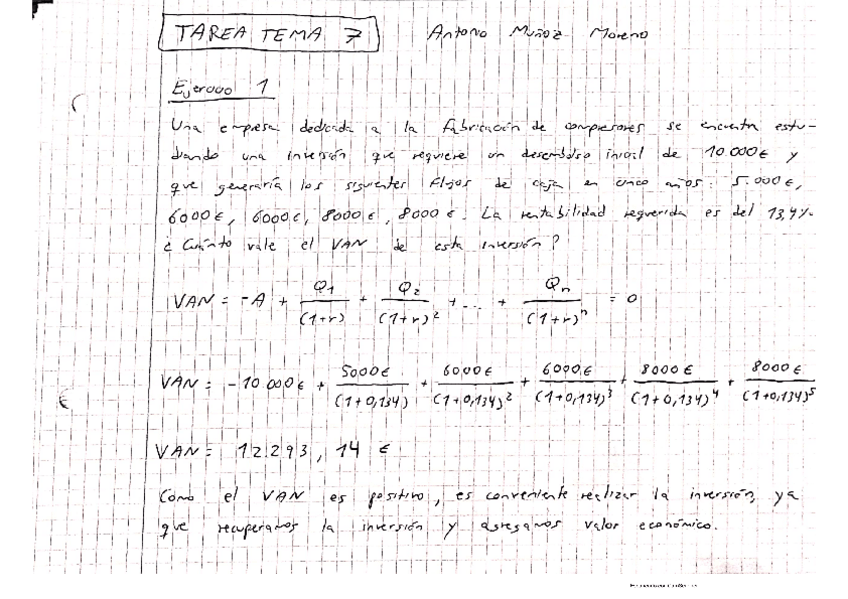 TAREA TEMA 7
Antonio Muñoz Moreno
Ejercicio 1
Una empresa dedicada a la fabricación de compresores se encuentra estu-
diando una inversión que requiere un desembolso inicial de 10.000€ y
que generaría los siguientes flujos de caja en cinco años: 5.000€,
6000€, 6000€, 8000€, 8000€. La rentabilidad requerida es del 13,4%.
¿Cuánto vale el VAN de esta inversión?
VAN = -A + Q1/(1+r) + Q2/(1+r)^2 + ... + Qn/(1+r)^n = 0
VAN = -10.000€ + 5000€/(1+0,134) + 6000€/(1+0,134)^2 + 6000€/(1+0,134)^3 + 8000€/(1+0,134)^4 + 8000€/(1+0,134)^5
VAN = 12.293,14 €
Como el VAN es positivo, es conveniente realizar la inversión, ya
que recuperamos la inversión y agregamos valor económico.